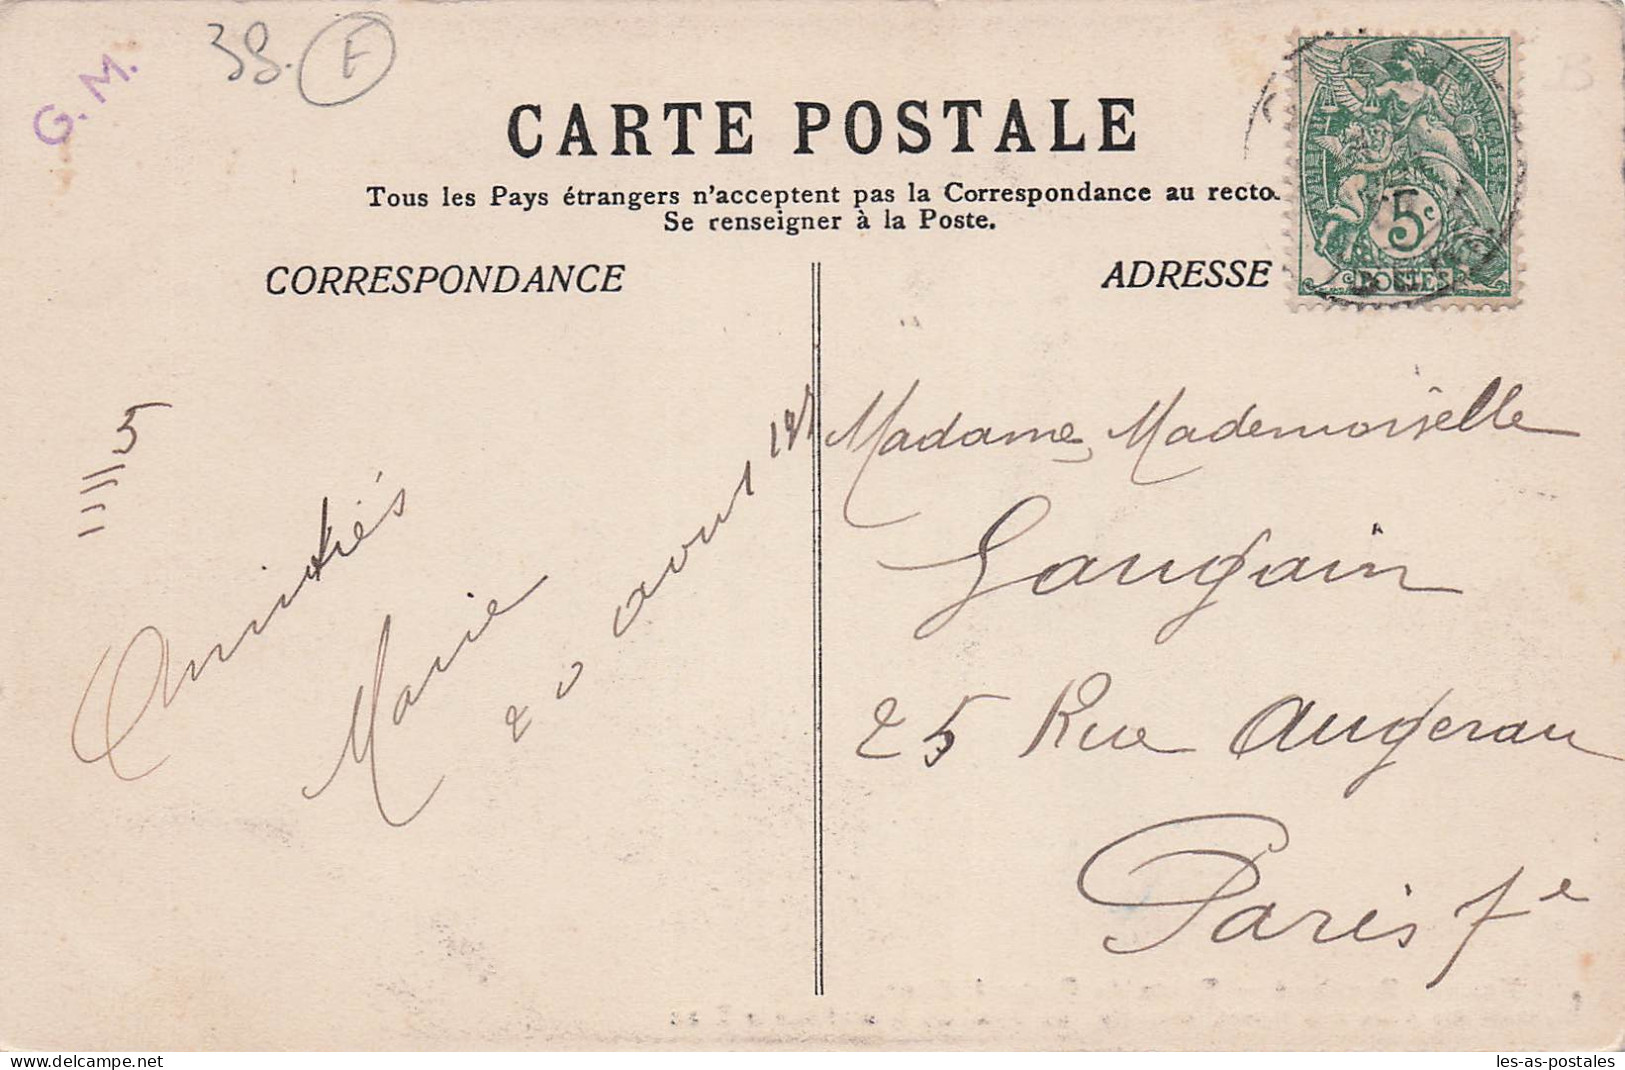 G. M.
38. F
B
CARTE POSTALE
Tous les Pays étrangers n'acceptent pas la Correspondance au recto.
Se renseigner à la Poste.
CORRESPONDANCE
ADRESSE
5c
POSTES
5
Amitiés
Marie
20 avril
Madame, Mademoiselle
Gaugain
25 Rue Augereau
Paris 7e
www.delcampe.net
les-as-postales